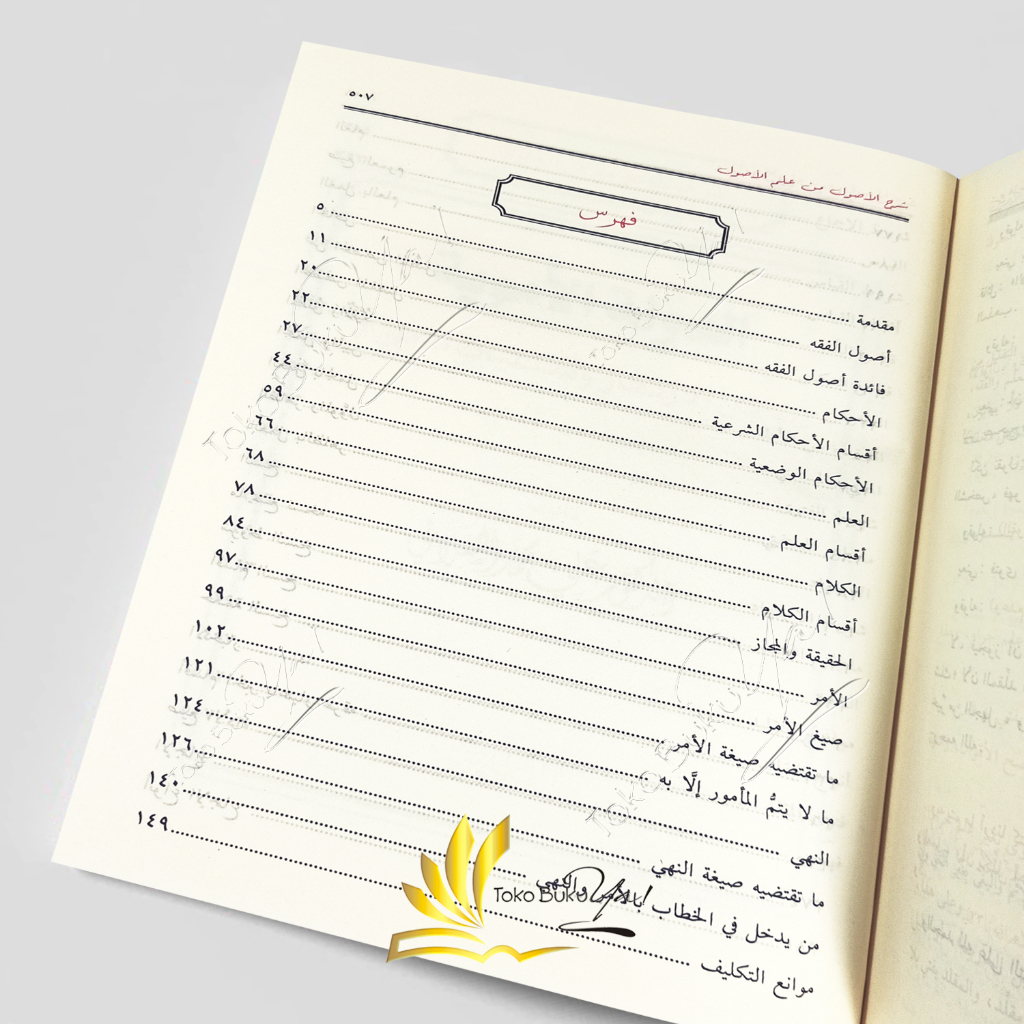 ٥٠٧
شرح الأصول من علم الأصول
فهرس
مقدمة ..... ٥
أصول الفقه ..... ١١
فائدة أصول الفقه ..... ٢٠
الأحكام ..... ٢٢
أقسام الأحكام الشرعية ..... ٢٧
الأحكام الوضعية ..... ٤٤
العلم ..... ٥٩
أقسام العلم ..... ٦٦
الكلام ..... ٦٨
أقسام الكلام ..... ٧٨
الحقيقة والمجاز ..... ٨٤
الأمر ..... ٩٧
صيغ الأمر ..... ٩٩
ما تقتضيه صيغة الأمر ..... ١٠٢
ما لا يتمُّ المأمور إلَّا به ..... ١٢١
النهي ..... ١٢٤
ما تقتضيه صيغة النهي ..... ١٢٦
من يدخل في الخطاب بالأمر والنهي ..... ١٤٠
موانع التكليف ..... ١٤٩
Toko Buku